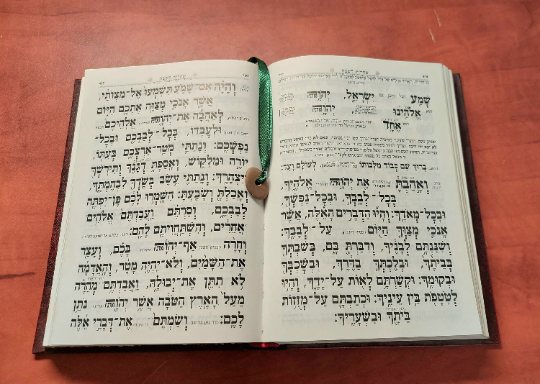 שְׁמַע יִשְׂרָאֵל, יְהֹוָה
אֱלֹהֵינוּ יְהֹוָה
אֶחָד
בָּרוּךְ שֵׁם כְּבוֹד מַלְכוּתוֹ לְעוֹלָם וָעֶד:
וְאָהַבְתָּ אֵת יְהֹוָה אֱלֹהֶיךָ,
בְּכָל־לְבָבְךָ, וּבְכָל־נַפְשְׁךָ,
וּבְכָל־מְאֹדֶךָ. וְהָיוּ הַדְּבָרִים הָאֵלֶּה, אֲשֶׁר
אָנֹכִי מְצַוְּךָ הַיּוֹם עַל־לְבָבֶךָ:
וְשִׁנַּנְתָּם לְבָנֶיךָ, וְדִבַּרְתָּ בָּם, בְּשִׁבְתְּךָ
בְּבֵיתֶךָ, וּבְלֶכְתְּךָ בַדֶּרֶךְ, וּבְשָׁכְבְּךָ
וּבְקוּמֶךָ: וּקְשַׁרְתָּם לְאוֹת עַל־יָדֶךָ, וְהָיוּ
לְטֹטָפֹת בֵּין עֵינֶיךָ: וּכְתַבְתָּם עַל־מְזֻזוֹת
בֵּיתֶךָ וּבִשְׁעָרֶיךָ:
וְהָיָה אִם־שָׁמֹעַ תִּשְׁמְעוּ אֶל־מִצְוֹתַי,
אֲשֶׁר אָנֹכִי מְצַוֶּה אֶתְכֶם הַיּוֹם
לְאַהֲבָה אֶת־יְהֹוָה אֱלֹהֵיכֶם
וּלְעָבְדוֹ, בְּכָל־לְבַבְכֶם וּבְכָל־
נַפְשְׁכֶם: וְנָתַתִּי מְטַר־אַרְצְכֶם בְּעִתּוֹ,
יוֹרֶה וּמַלְקוֹשׁ, וְאָסַפְתָּ דְגָנֶךָ וְתִירֹשְׁךָ
וְיִצְהָרֶךָ: וְנָתַתִּי עֵשֶׂב בְּשָׂדְךָ לִבְהֶמְתֶּךָ,
וְאָכַלְתָּ וְשָׂבָעְתָּ: הִשָּׁמְרוּ לָכֶם פֶּן־יִפְתֶּה
לְבַבְכֶם, וְסַרְתֶּם וַעֲבַדְתֶּם אֱלֹהִים
אֲחֵרִים, וְהִשְׁתַּחֲוִיתֶם לָהֶם:
וְחָרָה אַף־יְהֹוָה בָּכֶם, וְעָצַר
אֶת־הַשָּׁמַיִם, וְלֹא־יִהְיֶה מָטָר, וְהָאֲדָמָה
לֹא תִתֵּן אֶת־יְבוּלָהּ, וַאֲבַדְתֶּם מְהֵרָה
מֵעַל הָאָרֶץ הַטֹּבָה אֲשֶׁר יְהֹוָה נֹתֵן
לָכֶם: וְשַׂמְתֶּם אֶת־דְּבָרַי אֵלֶּה